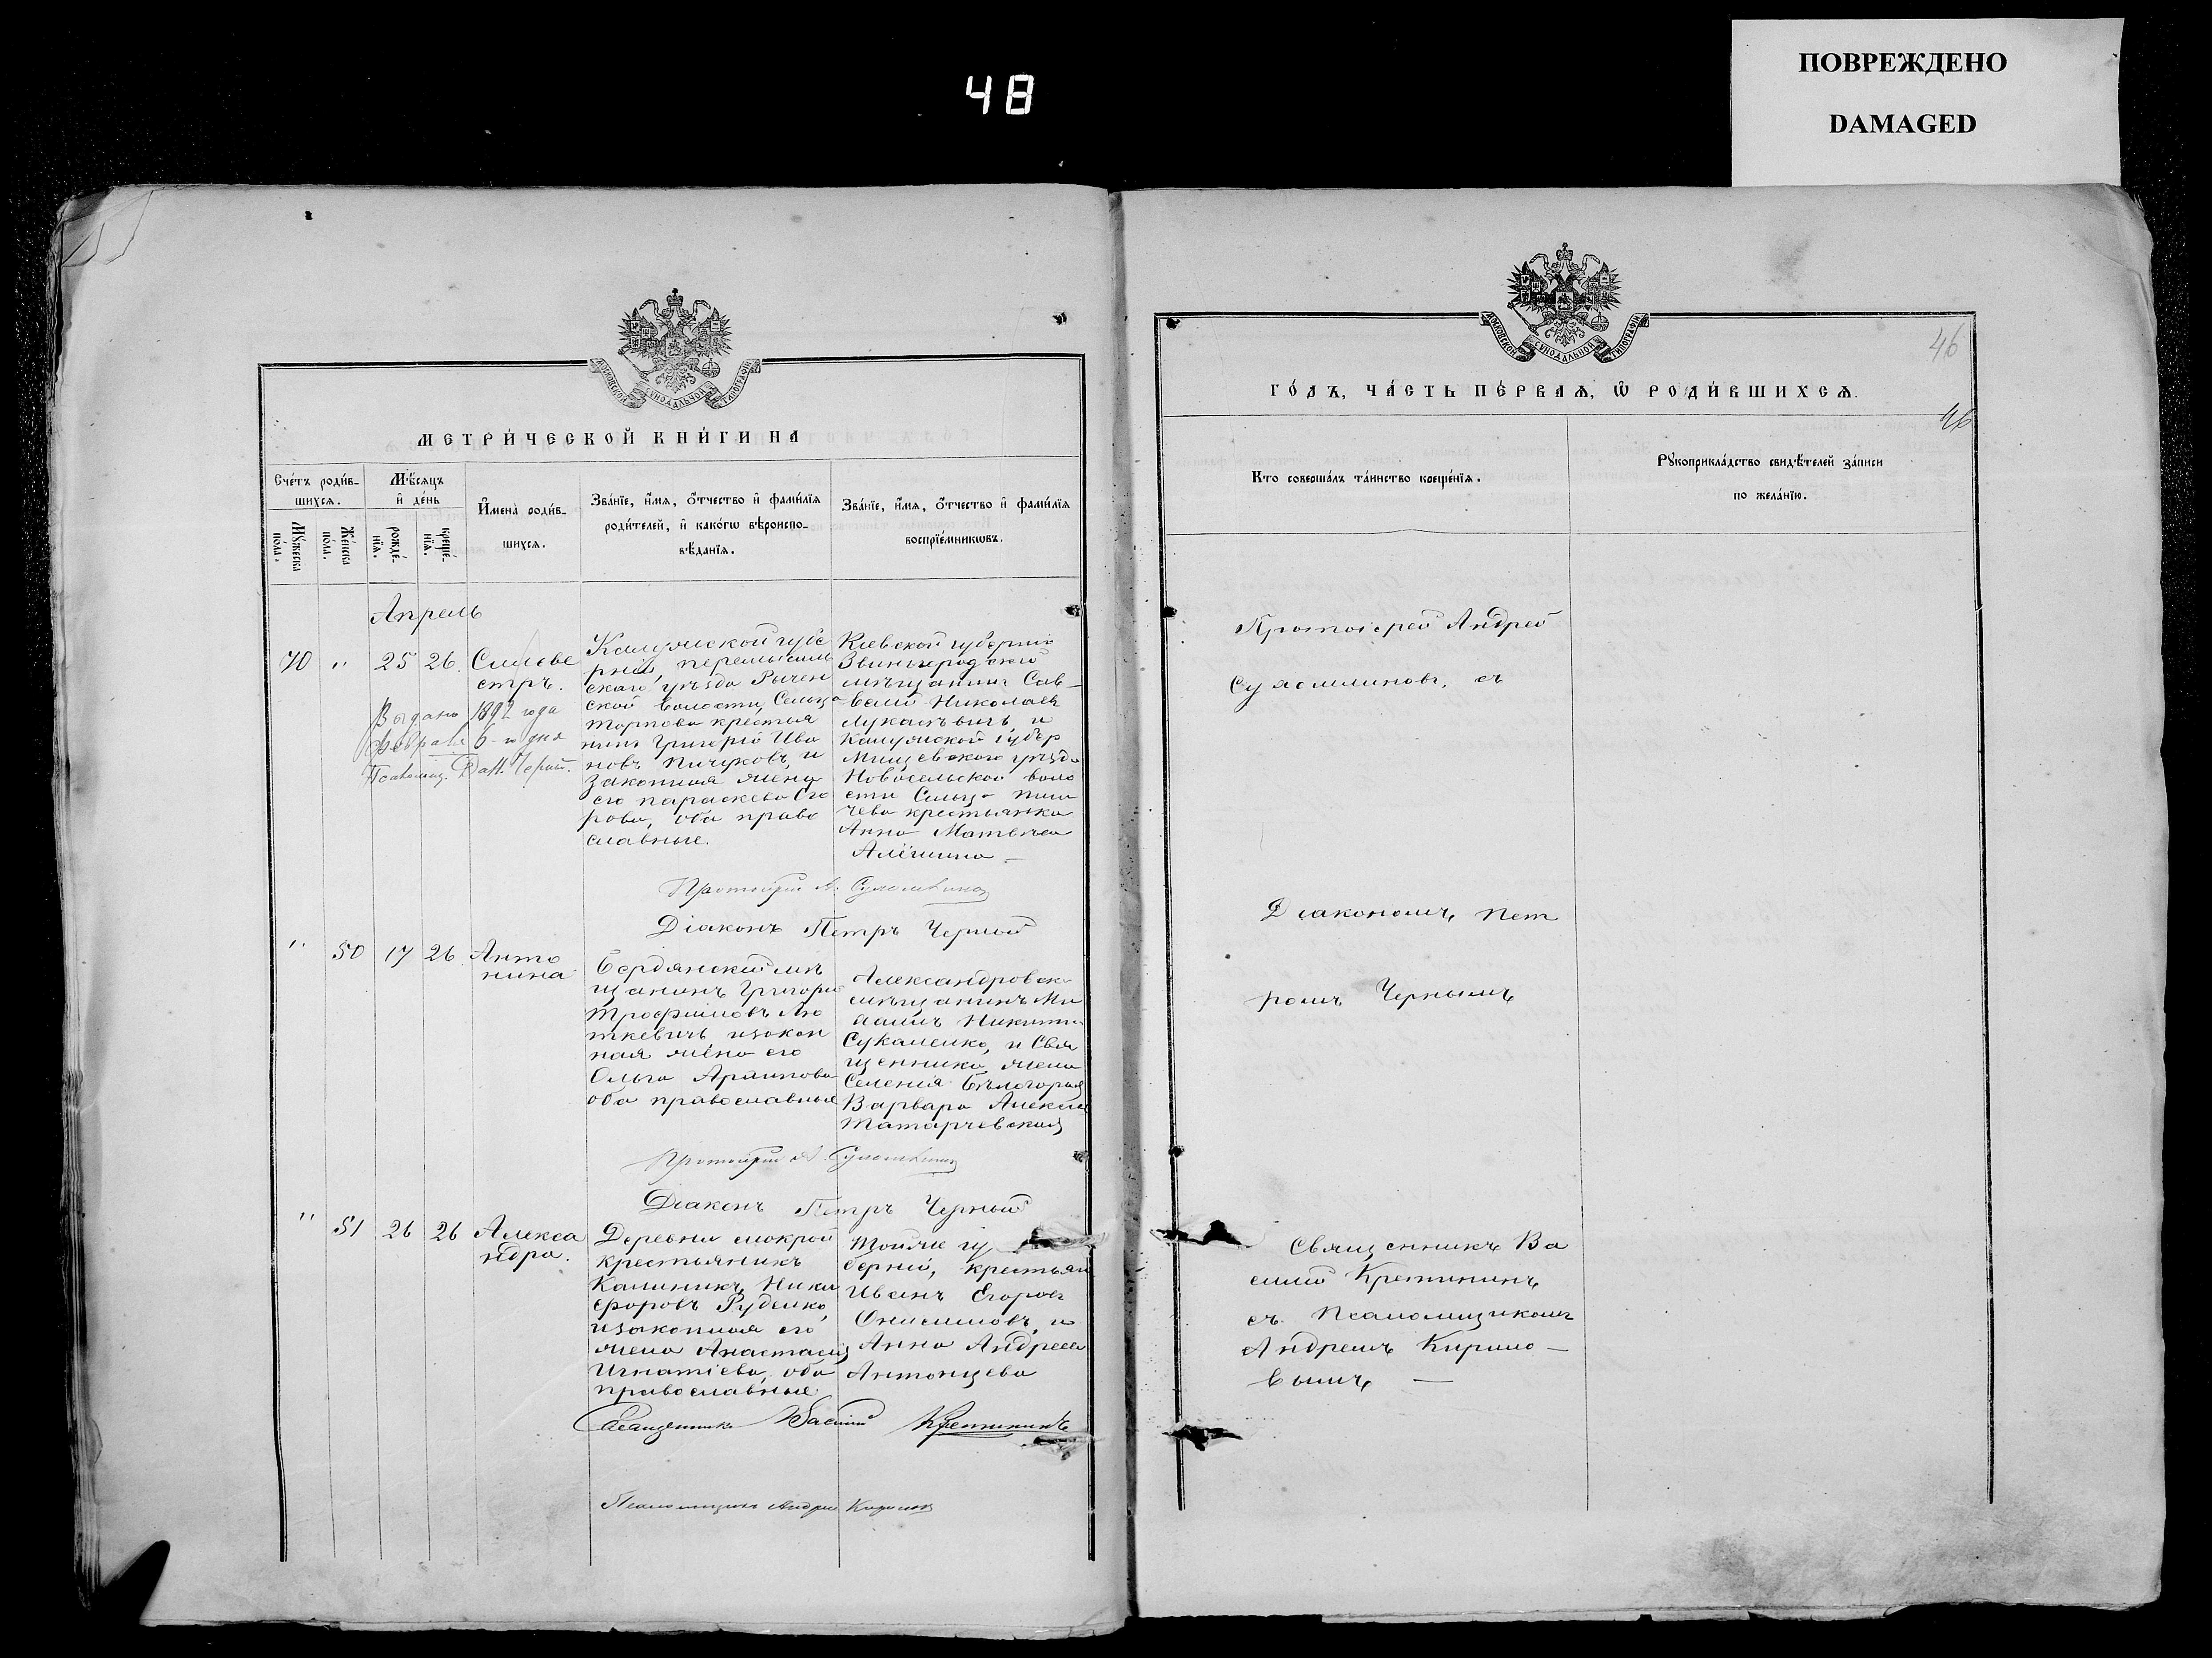 48
ПОВРЕЖДЕНО
DAMAGED
МОСКОВСКОЙ СѴНОДАЛЬНОЙ ТИПОГРАФІИ
МЕТРИ́ЧЕСКОЙ КНИ́ГИ НА
Сче́тъ роди́в-
шихсѧ.
Мꙋ́жеска
по́ла.
Же́нска
по́ла.
Мѣ́сѧцъ
и҆ де́нь
рожде́-
нїѧ.
креще́-
нїѧ.
И҆мена̀ роди́в-
шихсѧ.
Зва́нїе, и҆́мѧ, ѻ҆́тчество и҆ фами́лїѧ
роди́телей, и҆ како́гѡ вѣроиспо-
вѣ́данїѧ.
Зва́нїе, и҆́мѧ, ѻ҆́тчество и҆ фами́лїѧ
воспрїе́мникѡвъ.
Апрель
40 " 25 26 Сильве
стръ.
Выдано 1892 года
Февраля 6-го дня
Псаломщ.
Калужской губе
рніи, перемышль
скаго уѣзда
ской волости, Сельца
крестья
нинъ Григорій Ива
новъ Пичуковъ, и
законная жена
его параскева Его
рова, оба право
славные.
Кіевской губерніи
Звиногродскій
мѣщанинъ Сав-
велій Николаевъ
и
Калужской губер
уѣзда
Новосельской воло
сти Сельца
чева крестьянка
Анна Матвѣева
Алёшина —
Протоіерей А.
Діаконъ Петръ Черный
" 50 17 26 Анто
нина
Бердянскій мѣ
щанинъ Григорій
Трофимовъ Лю
ткевичъ и закон
ная жена его
Ольга Архипова
оба православные
Александровск
мѣщанинъ Ми
хаилъ Никитин
Сукаленко, и Свя
щенника жена
Селенія Бѣлогорья
Варвара Алексѣе
Татарчевская
Протоіерей А.
Діаконъ Петръ Черный
" 51 26 26 Алекса
ндра.
Деревни мокрой
крестьянинъ
Калиникъ Ники
форовъ Руденко,
и законная его
жена Анастасія
Игнатіева, оба
православные
Тойже гу
берніи, крестьян
Иванъ Егоровъ
Онисимовъ, и
Анна Андреева
Антонцева
Священникъ Василій Кретининъ
Псаломщикъ Андрей
МОСКОВСКОЙ СѴНОДАЛЬНОЙ ТИПОГРАФІИ
46
ГО́ДЪ, ЧА́СТЬ ПЕ́РВАѦ, Ѡ҆ РОДИ́ВШИХСѦ.
46
Кто соверша́лъ та́инство креще́нїѧ.
Рꙋкоприкла́дство свидѣ́телей за́писи
по жела́нїю.
Протоіерей Андрей
съ
Діакономъ Пет
ромъ Чернымъ
Священникъ Ва
силій Кретининъ
съ Псаломщикомъ
Андреемъ Кирило—
вымъ —